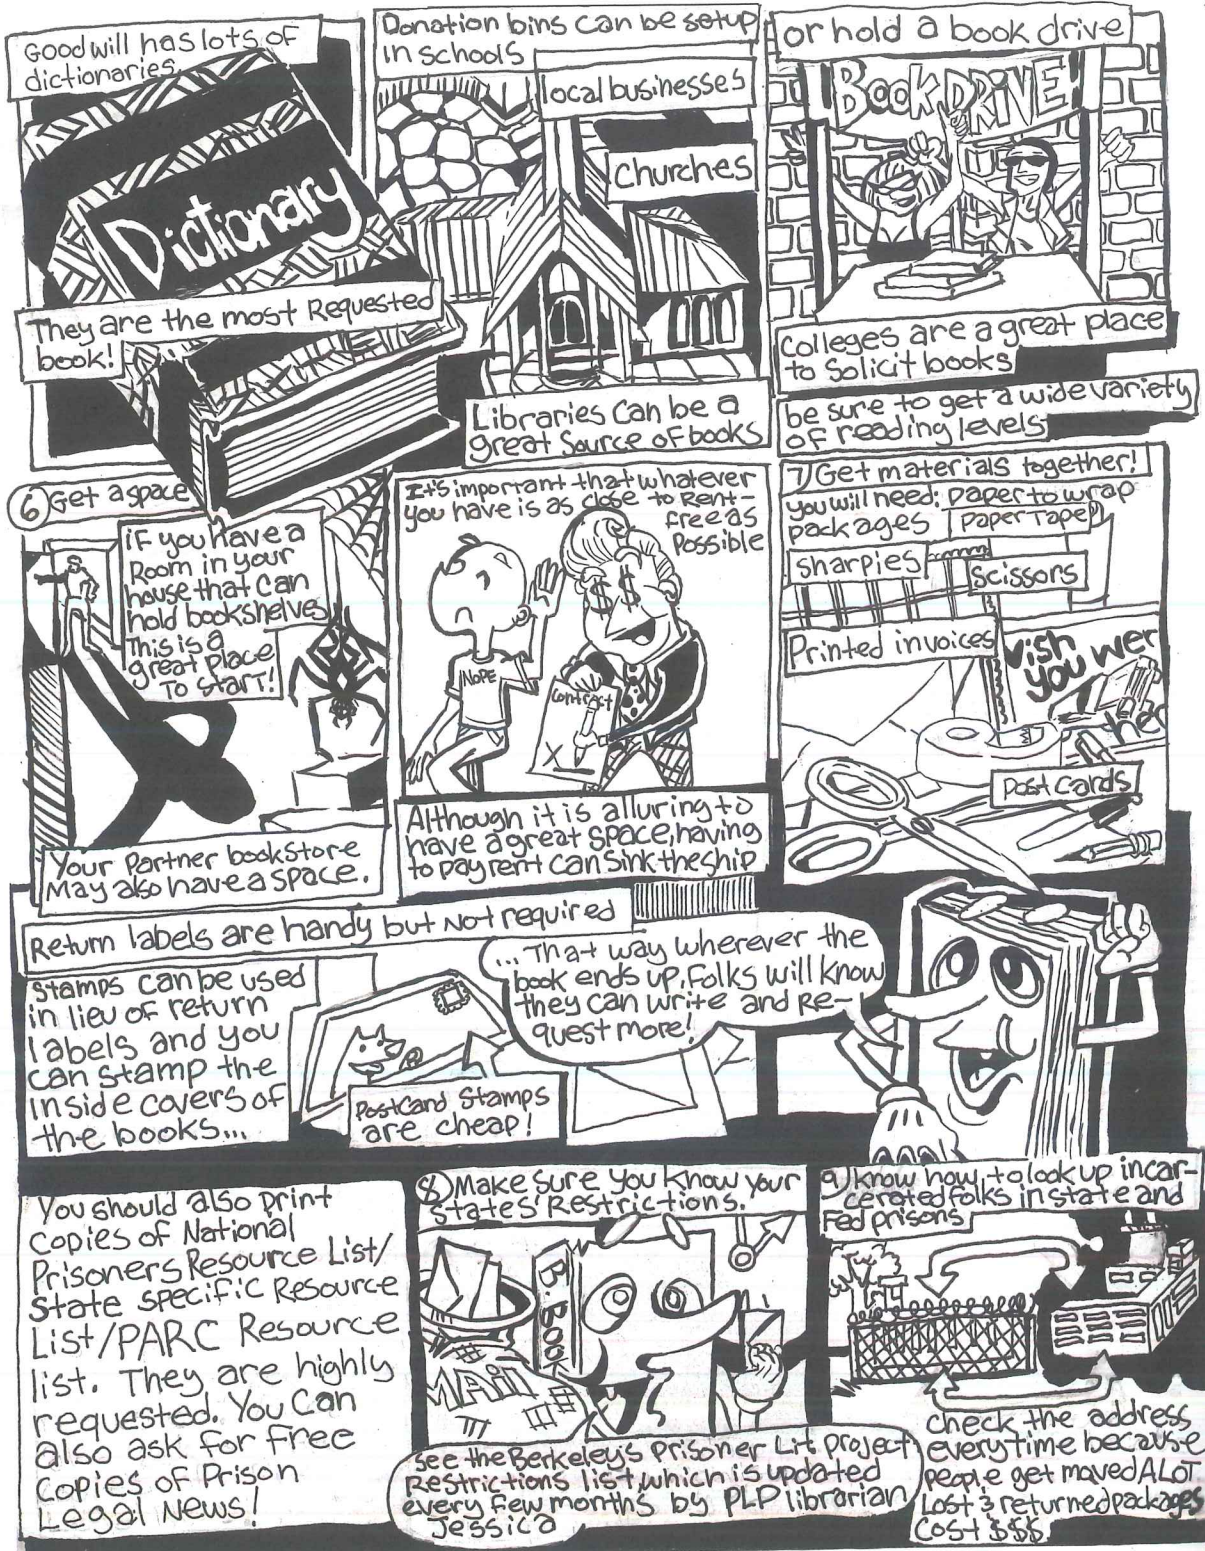 Goodwill has lots of
dictionaries
Dictionary
They are the most Requested
book!
Donation bins can be setup
in schools
local businesses
Churches
Libraries Can be a
great Source of books
or hold a book drive
BOOK DRIVE!
Colleges are a great place
to Solicit books
be sure to get a wide variety
of reading levels
6 Get a space
if you have a
Room in your
house that can
hold bookshelves
This is a
great place
To start!
Your Partner bookstore
May also have a space.
It's important that whatever
you have is as close to Rent-
free as
Possible
NOPE
Contract
X
Although it is alluring to
have a great space, having
to pay rent can sink the ship
7) Get materials together!
you will need: paper to wrap
packages
Paper Tape
sharpies
Scissors
Printed invoices
wish
you wer
Post Cards
Return labels are handy but not required
Stamps can be used
in lieu of return
labels and you
can stamp the
inside covers of
the books...
PostCard Stamps
are cheap!
... That way wherever the
book ends up, folks will know
they can write and Re-
quest more!
You should also print
Copies of National
Prisoners Resource List/
State specific Resource
List/PARC Resource
list. They are highly
requested. You Can
also ask for free
Copies of Prison
Legal News!
8) Make sure you know your
States' Restrictions.
B. Book
MAil
See the Berkeley's Prisoner Lit project
Restrictions list, which is updated
every few months by PLP librarian
Jessica
9) know how to look up incar-
cerated folks in state and
Fed prisons
check the address
everytime because
people get moved ALOT
Lost & returned packages
Cost $$$